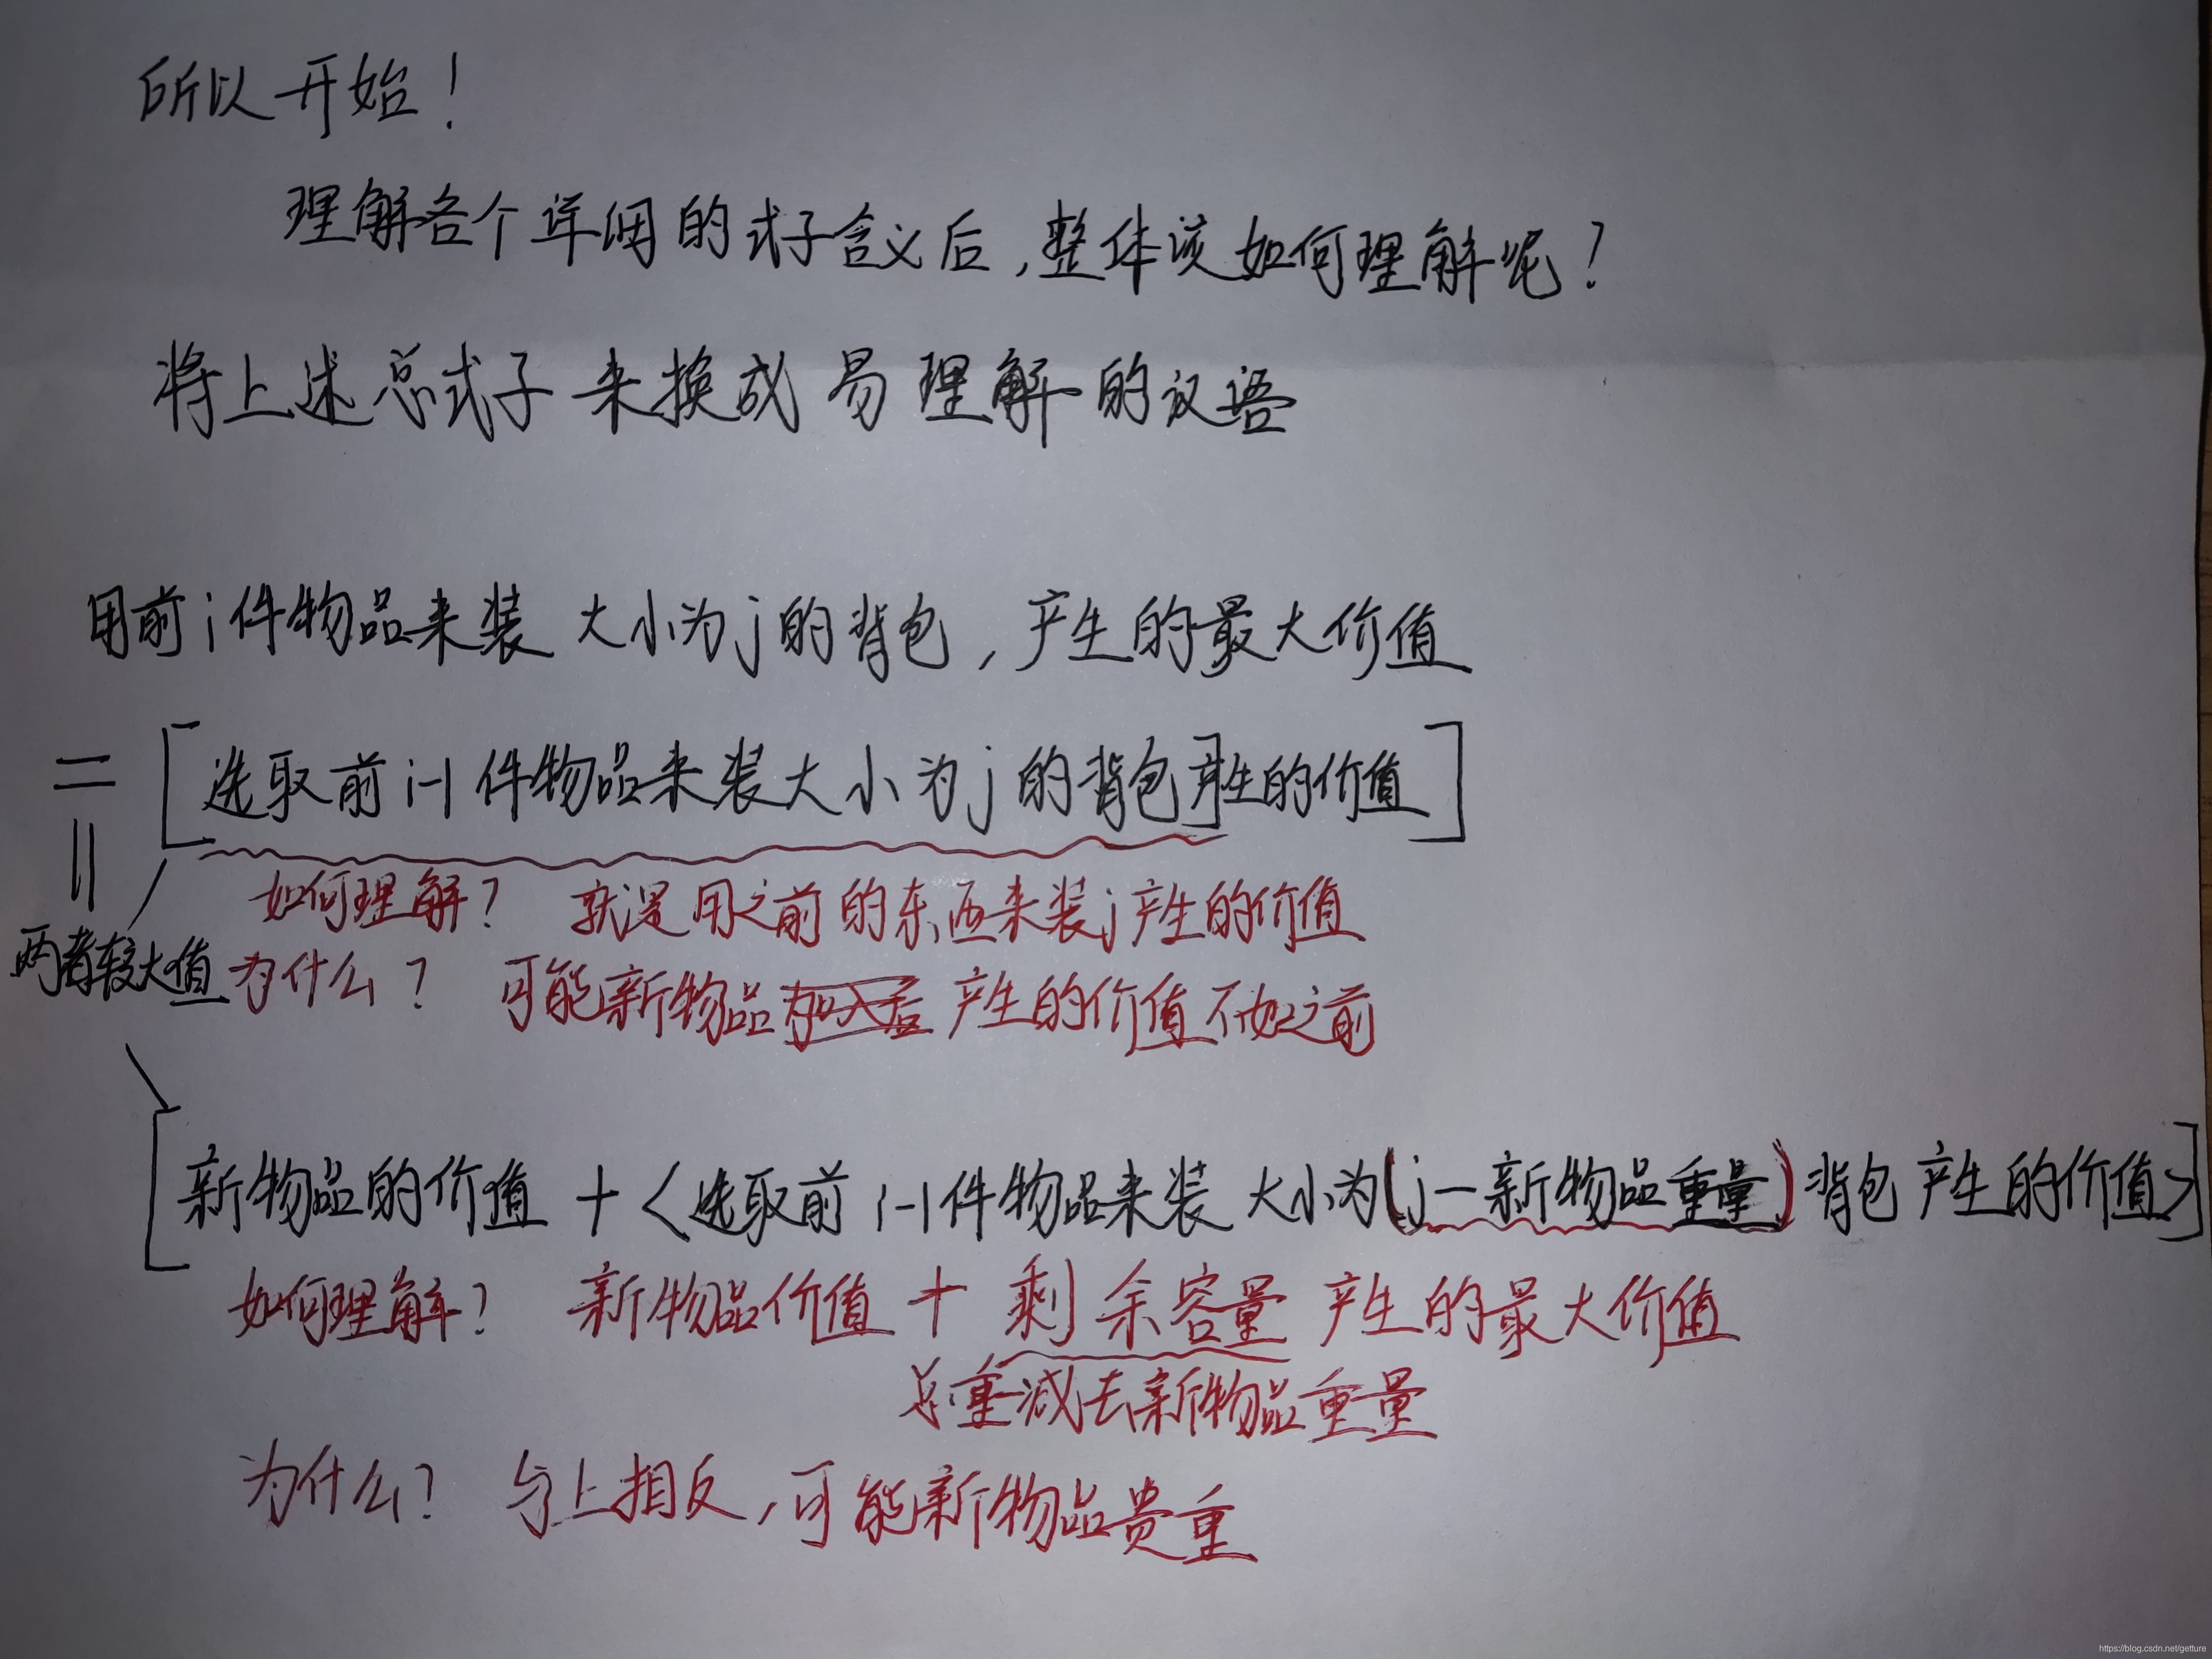 所以开始！
理解各个详细的式子含义后，整体该如何理解呢？
将上述总式子来换成易理解的汉语
用前i件物品来装 大小为j的背包，产生的最大价值
= [选取前i-1件物品来装大小为j的背包产生的价值]
如何理解？ 就是用之前的东西来装j产生的价值
两者较大值
为什么？ 可能新物品产生的价值不如之前
[新物品的价值 + <选取前i-1件物品来装 大小为(j-新物品重量)背包产生的价值>]
如何理解？ 新物品价值 + 剩余容量产生的最大价值
总重减去新物品重量
为什么？ 与上相反，可能新物品贵重
https://blog.csdn.net/getture